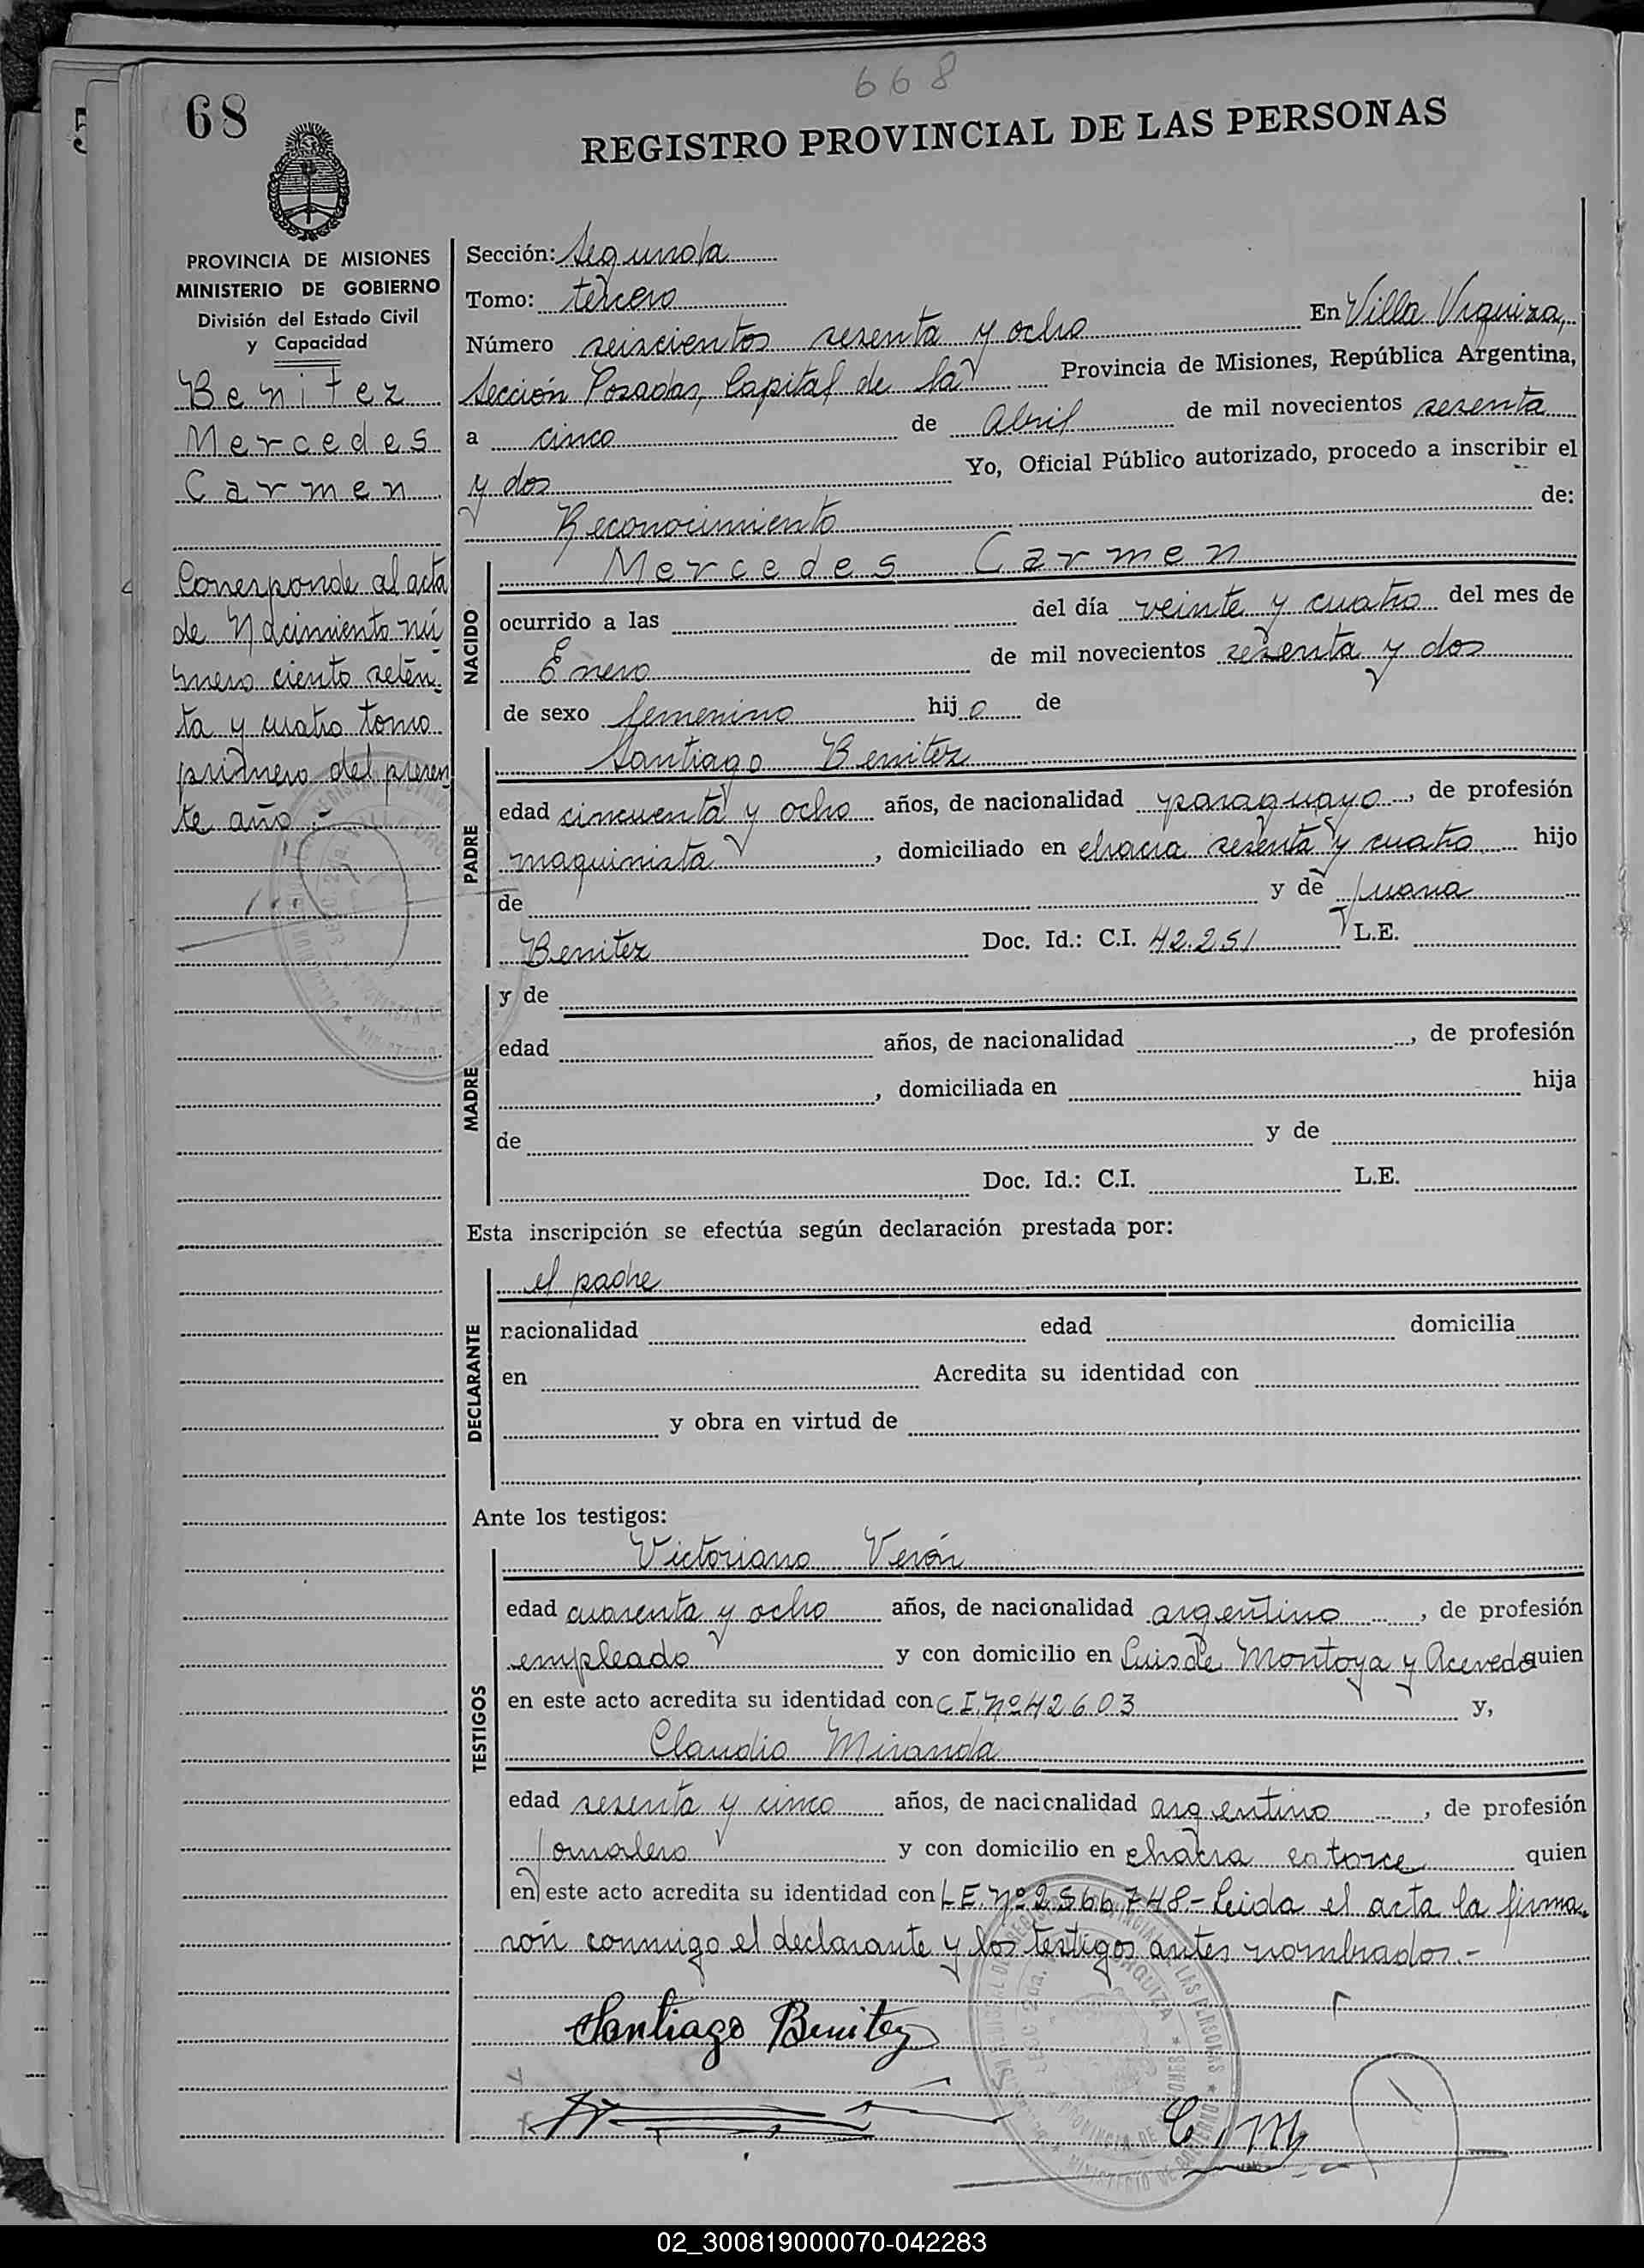 668
68
REGISTRO PROVINCIAL DE LAS PERSONAS
PROVINCIA DE MISIONES
MINISTERIO DE GOBIERNO
División del Estado Civil
y Capacidad
Benitez
Mercedes
Carmen
Corresponde al acta
de Nacimiento nú
mero ciento seten-
ta y cuatro tomo
primero del presen
te año.-
Sección: Segunda
Tomo: tercero
Número seiscientos sesenta y ocho En Villa Urquiza,
Sección Posadas, Capital de la Provincia de Misiones, República Argentina,
a cinco de Abril de mil novecientos sesenta
y dos Yo, Oficial Público autorizado, procedo a inscribir el
Reconocimiento de:
NACIDO
Mercedes Carmen
ocurrido a las del día veinte y cuatro del mes de
Enero de mil novecientos sesenta y dos
de sexo femenino hijo de
PADRE
Santiago Benitez
edad cincuenta y ocho años, de nacionalidad paraguayo, de profesión
maquinista, domiciliado en chacra sesenta y cuatro hijo
de y de Juana
Benitez Doc. Id.: C.I. 42.251 L.E.
MADRE
y de
edad años, de nacionalidad , de profesión
, domiciliada en hija
de y de
Doc. Id.: C.I. L.E.
Esta inscripción se efectúa según declaración prestada por:
DECLARANTE
el padre
nacionalidad edad domicilia
en Acredita su identidad con
y obra en virtud de
Ante los testigos:
TESTIGOS
Victoriano Verón
edad cuarenta y ocho años, de nacionalidad argentino, de profesión
empleado y con domicilio en Luis de Montoya y Acevedo quien
en este acto acredita su identidad con C I. Nº 42603 y,
Claudio Miranda
edad sesenta y cinco años, de nacionalidad argentino, de profesión
Jornalero y con domicilio en chacra catorce quien
en este acto acredita su identidad con L E. Nº 2566748.- Leida el acta la firma-
rón conmigo el declarante y los testigos antes nombrados.-
Santiago Benitez
C. M
02_300819000070-042283